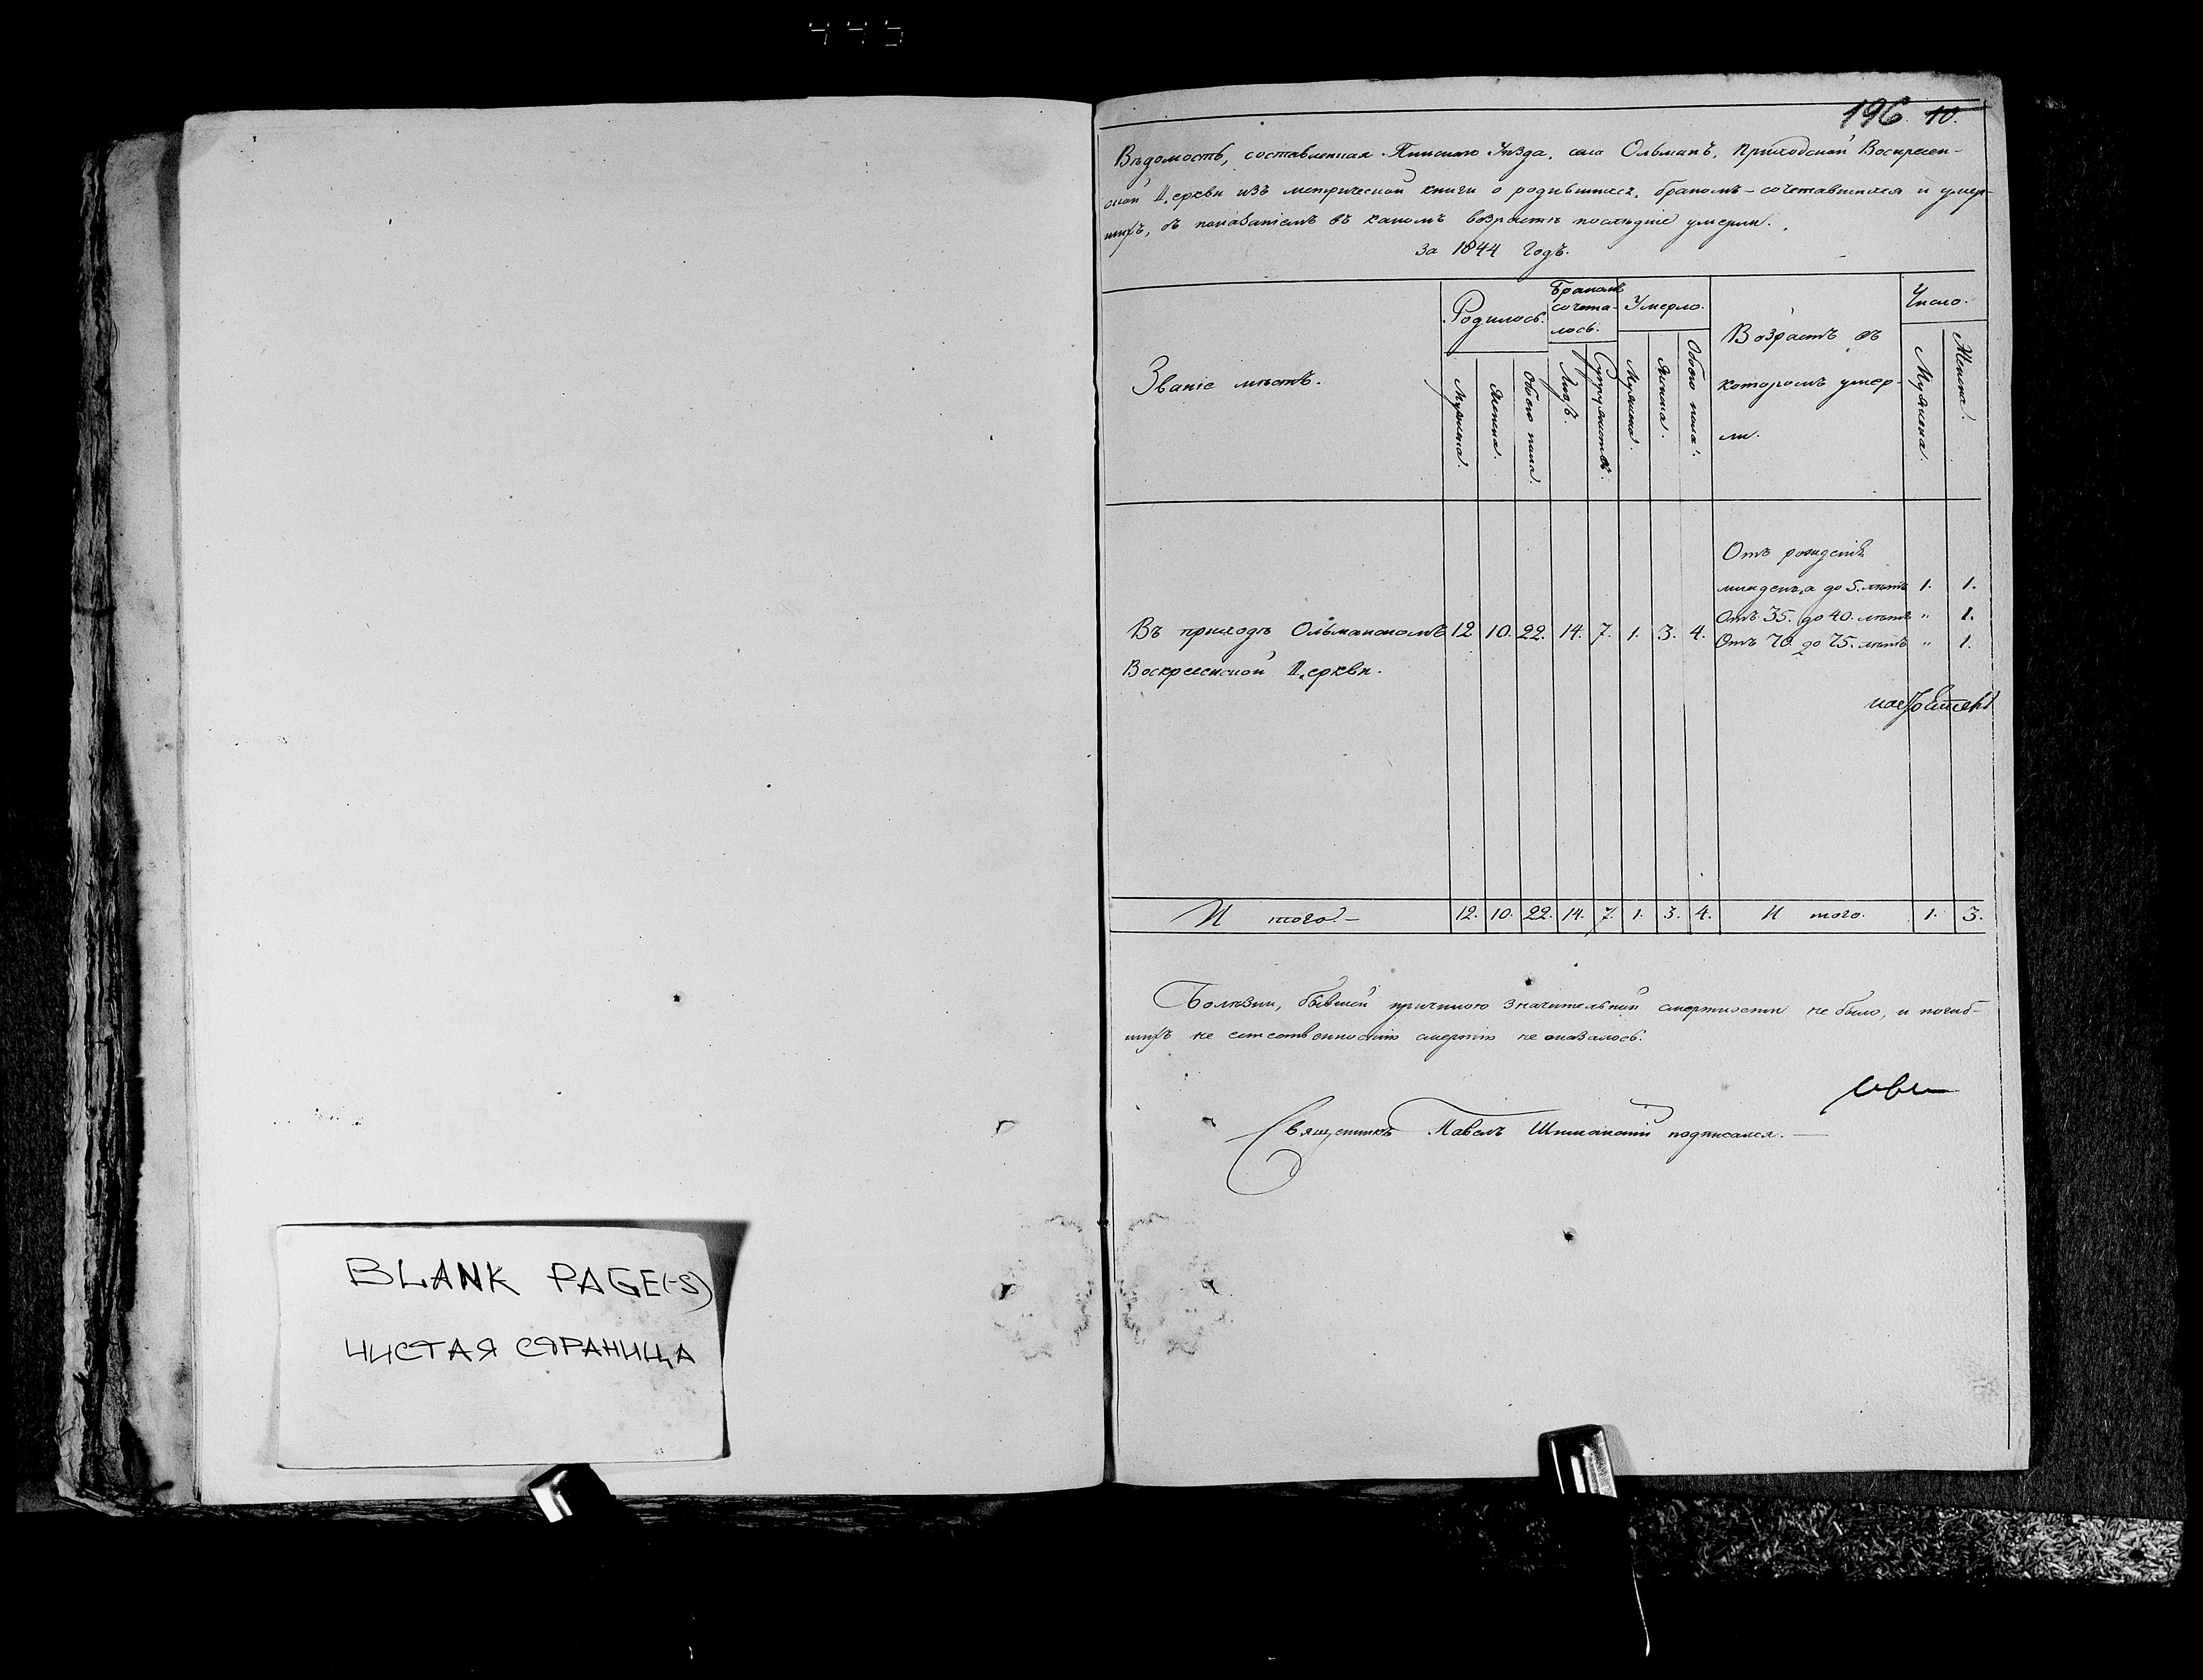 443
BLANK PAGE(-S)
ЧИСТАЯ СТРАНИЦА
196. 10.
Вѣдомость, составленная Пинскаго Уѣзда, села Ольманъ, Приходской Воскресен-
ской Церкви изъ метрической книги о родившихся, бракомъ-сочетавшихся и умер-
шихъ, съ показаніемъ въ какомъ возрастѣ послѣдніе умерли.
За 1844 Годъ.
Званіе мѣстъ.
Родилось.
Мужеска.
Женска.
Обоего пола.
Бракомъ
сочета-
лось.
Лицъ.
Супружествъ.
Умерло.
Мужеска.
Женска.
Обоего пола.
Возрастъ въ
которомъ умер-
ли.
Число.
Мужеска.
Женска.
Отъ рожденія
младенца до 5. лѣтъ 1. 1.
Отъ 35. до 40. лѣтъ " 1.
Въ приходѣ Ольманскомъ 12 10. 22. 14. 7. 1. 3. 4. Отъ 70. до 75. лѣтъ " 1.
Воскресенской Церкви.
И того. — 12. 10. 22. 14. 7. 1. 3. 4. И того. 1. 3.
Болѣзни, бывшей причиною значительной смертности не было, и погиб-
шихъ не естественностію смертію не оказалось.
Священникъ Павелъ подписался. —